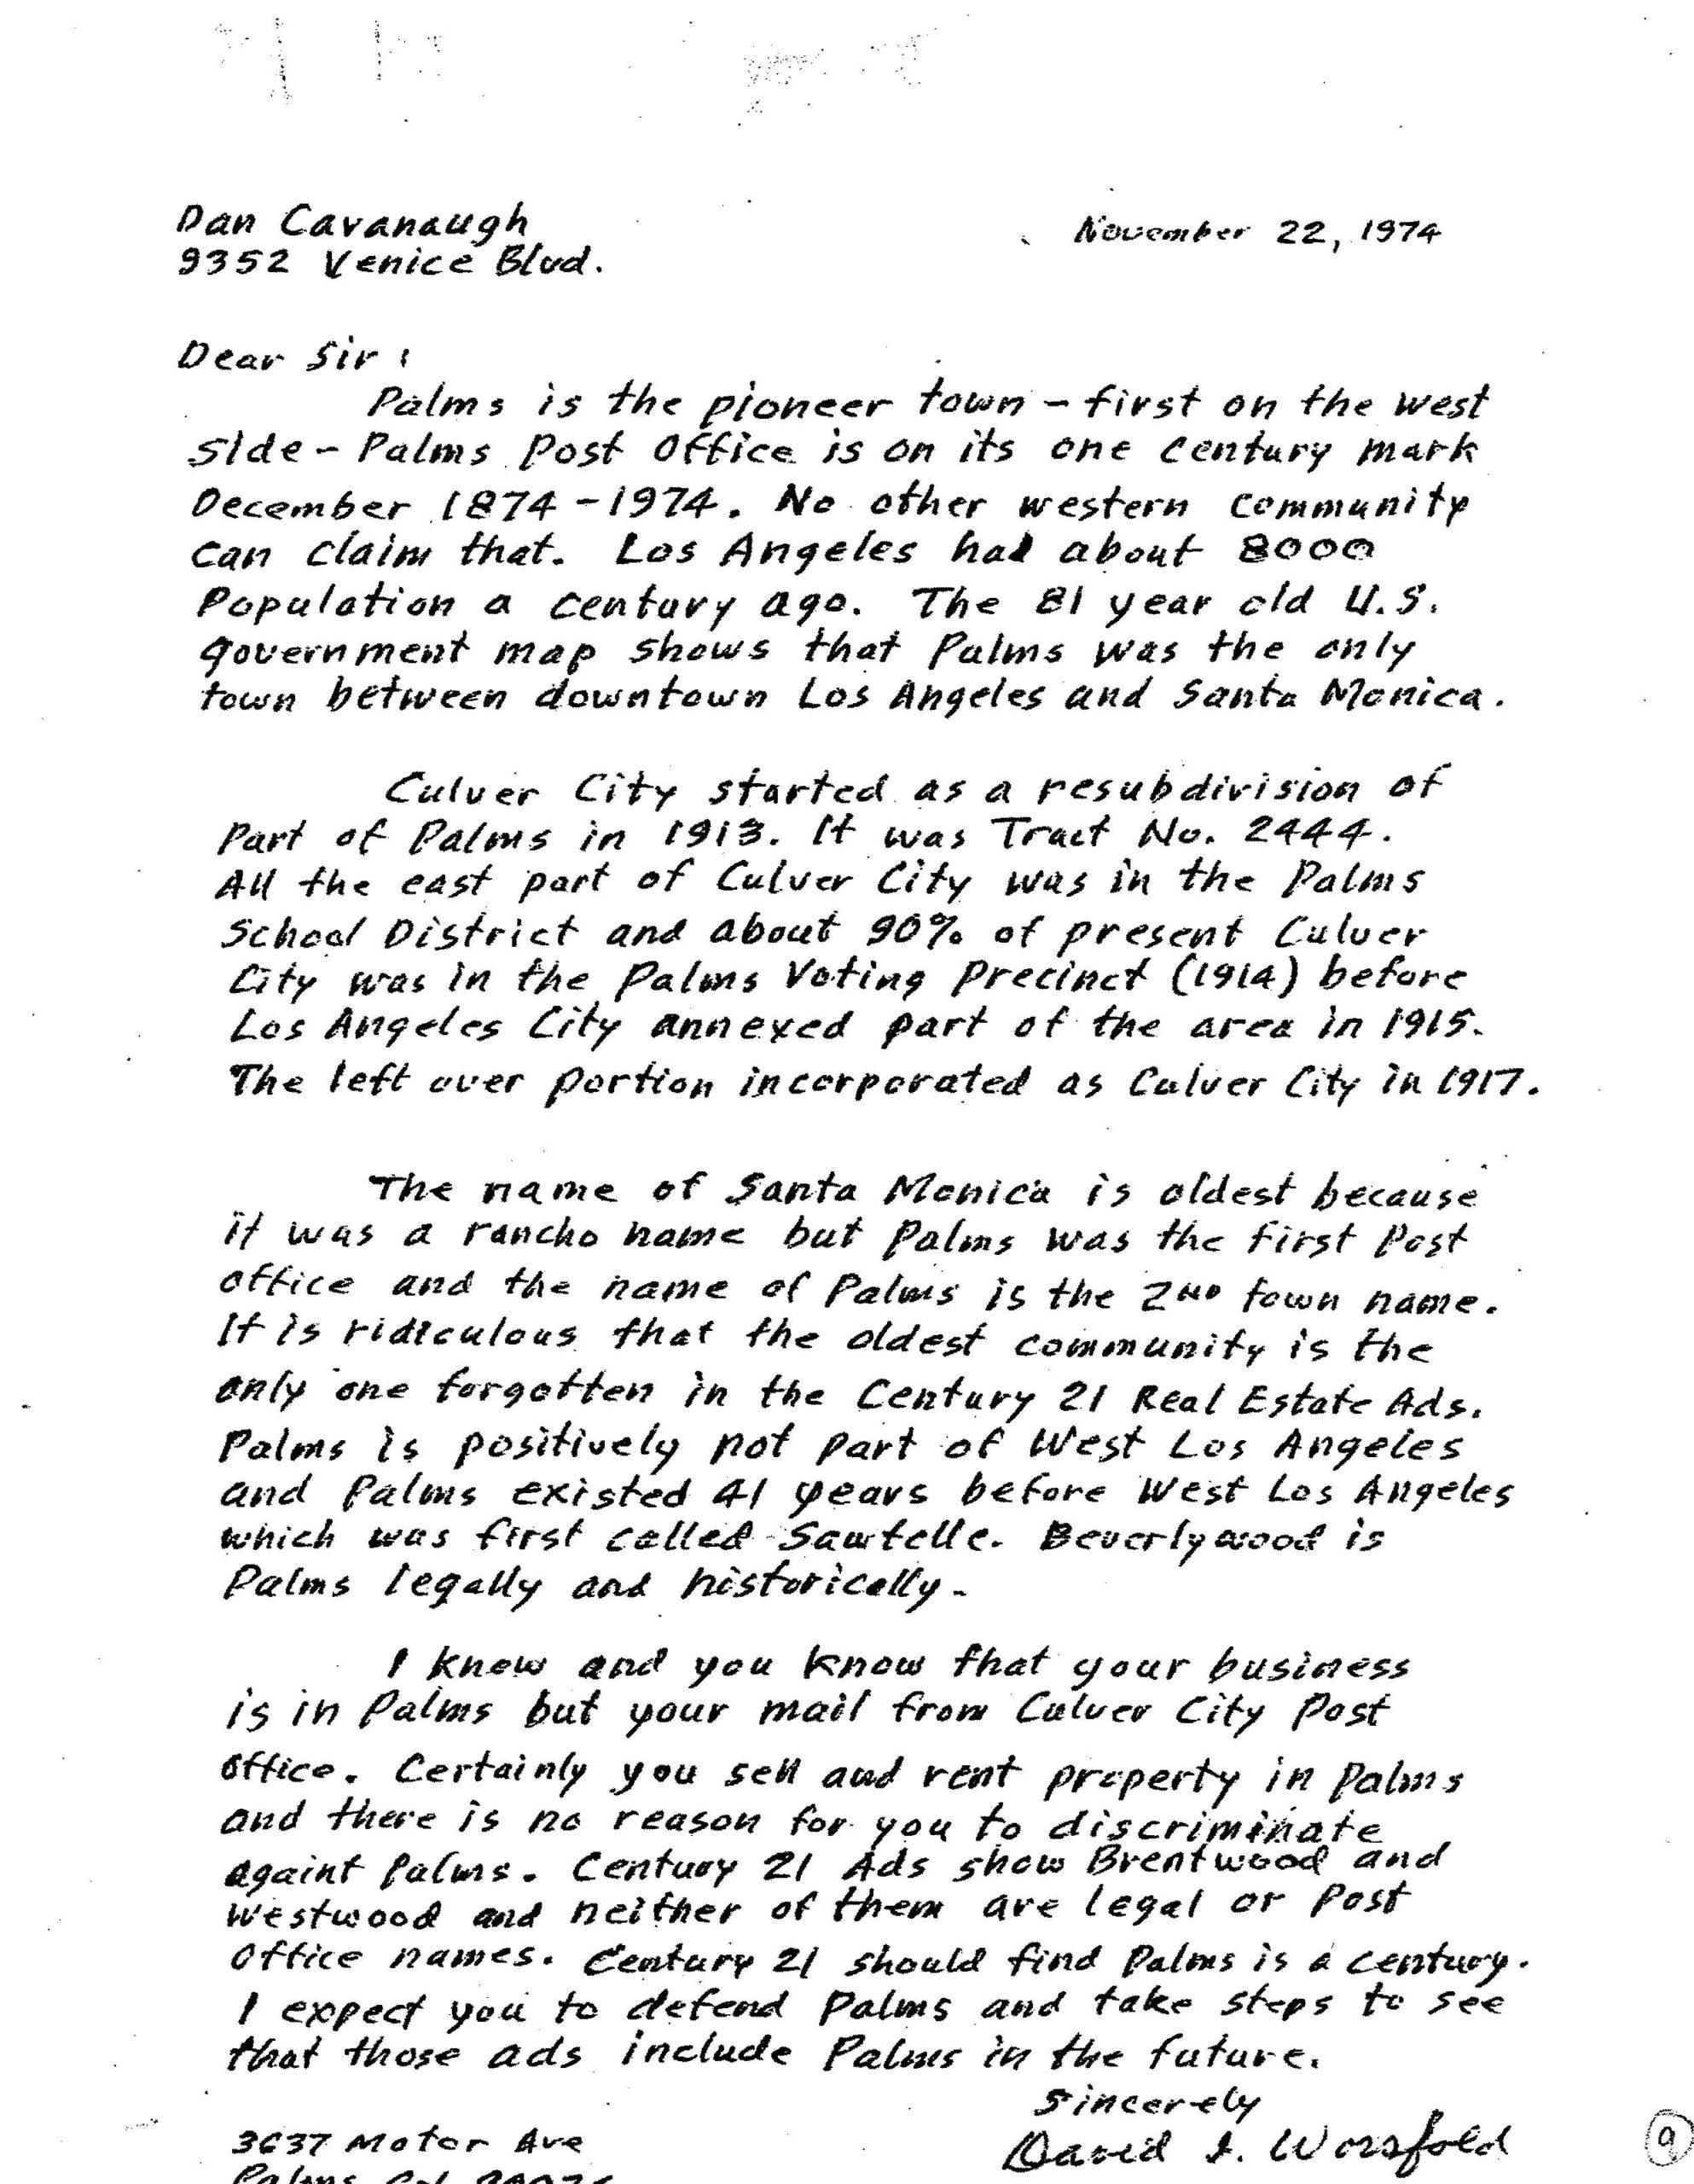 Dan Cavanaugh
November 22, 1974
9352 Venice Blvd.
Dear Sir:
Palms is the pioneer town - first on the west
side - Palms Post Office is on its one century mark
December 1874 - 1974. No other western community
can claim that. Los Angeles had about 8000
Population a century ago. The 81 year old U.S.
government map shows that Palms was the only
town between downtown Los Angeles and Santa Monica.
Culver City started as a resubdivision of
Part of Palms in 1913. It was Tract No. 2444.
All the east part of Culver City was in the Palms
School District and about 90% of present Culver
City was in the Palms Voting Precinct (1914) before
Los Angeles City annexed part of the area in 1915.
The left over portion incorporated as Culver City in 1917.
The name of Santa Monica is oldest because
it was a rancho name but Palms was the first Post
office and the name of Palms is the 2ND town name.
It is ridiculous that the oldest community is the
only one forgotten in the Century 21 Real Estate Ads.
Palms is positively not part of West Los Angeles
and Palms existed 41 years before West Los Angeles
which was first called Sawtelle. Beverlywood is
Palms legally and historically.
I know and you know that your business
is in Palms but your mail from Culver City Post
Office. Certainly you sell and rent property in Palms
and there is no reason for you to discriminate
againt Palms. Century 21 Ads show Brentwood and
Westwood and neither of them are legal or Post
Office names. Century 21 should find Palms is a century.
I expect you to defend Palms and take steps to see
that those ads include Palms in the future.
Sincerely
David I. Worsfold
3637 Motor Ave
Palms
9